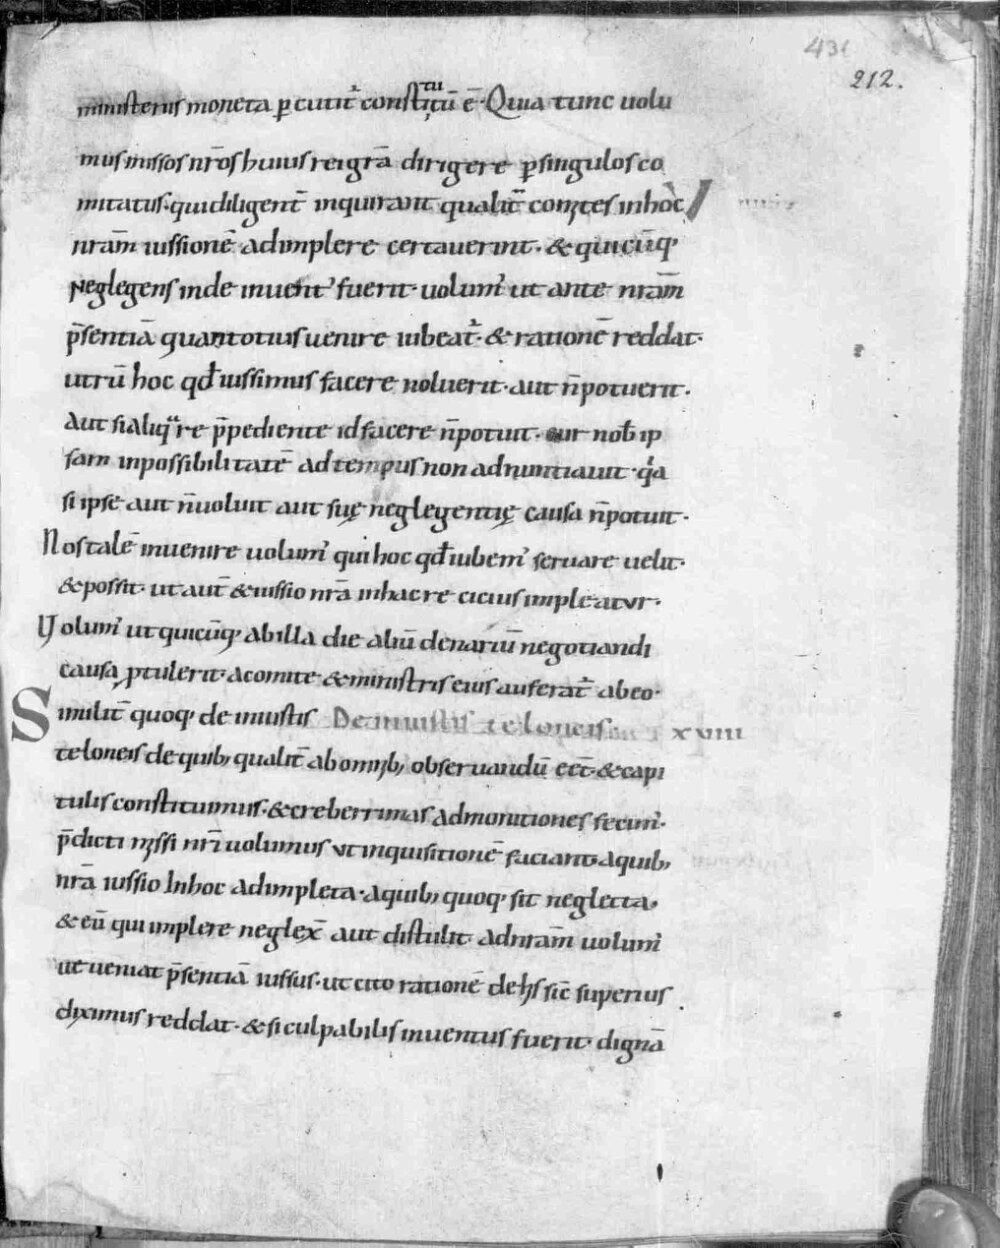 431
212.
ministeriis moneta ꝑcutit᷑ constitutū ē· Quia tunc uolu
mus missos nr̄os huius rei gr̄a dirigere ꝑ singulos co
mitatus· qui diligent̄ inquirant qualit̄ comites in hoc
nrām iussionē adimplere certauerint· & quicūq;
neglegens inde inuent᷒ fuerit· uolum᷒ ut ante nrām
p̄sentiā quantotius uenire iubeat᷑· & rationē reddat·
utrū hoc qđ iussimus facere noluerit· aut n̄ potuerit·
Aut si aliqua re p̄pediente id facere n̄ potuit· cur nob̄ ip
sam inpossibilitatē ad tempus non adnuntiauit· qͥa
si ipse aut n̄ uoluit aut suę neglegentię causa n̄ potuit·
Nos talē inuenire uolum᷒ qui hoc qđ iubem᷒ seruare uelit·
& possit· ut aut̄ & iussio nr̄a in hac re cicius impleatur·
Uolum᷒ ut quicūq; ab illa die aliū denariū negotiandi
causa ꝓtulerit· a comite & ministris eius auferat᷑ ab eo·
Similit̄ quoq; de iniustis De iniustis teloneis xviii
teloneis de quib; qualit̄ ab omnib; obseruandū ēēt· & capi
tulis constituimus· & creberrimas admonitiones fecim᷒·
p̄dicti missi nr̄i uolumus ut inquisitionē faciant· a quib;
nr̄a iussio in hoc adimpleta· a quib; quoq; sit neglecta·
& eū qui implere neglex̄ aut distulit· ad nrām uolum᷒
ut ueniat p̄sentiā iussus· ut cito rationē de his sic̄ superius
diximus reddat· & si culpabilis inuentus fuerit· dignā